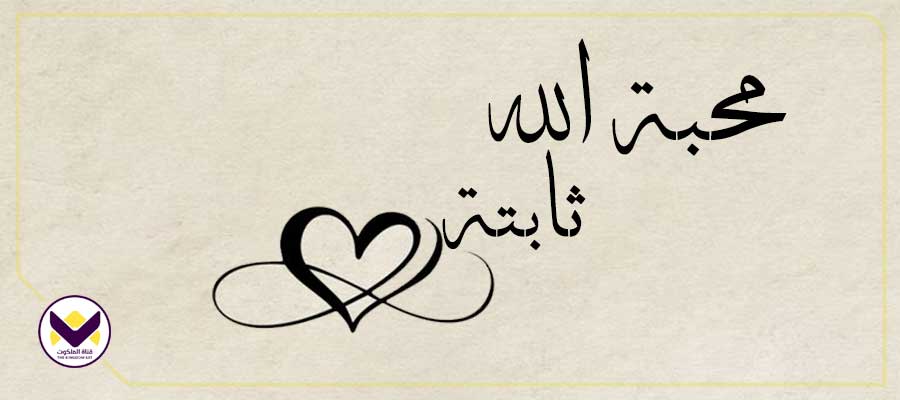 محبة الله
ثابتة
قناة الملكوت
THE KINGDOM SAT